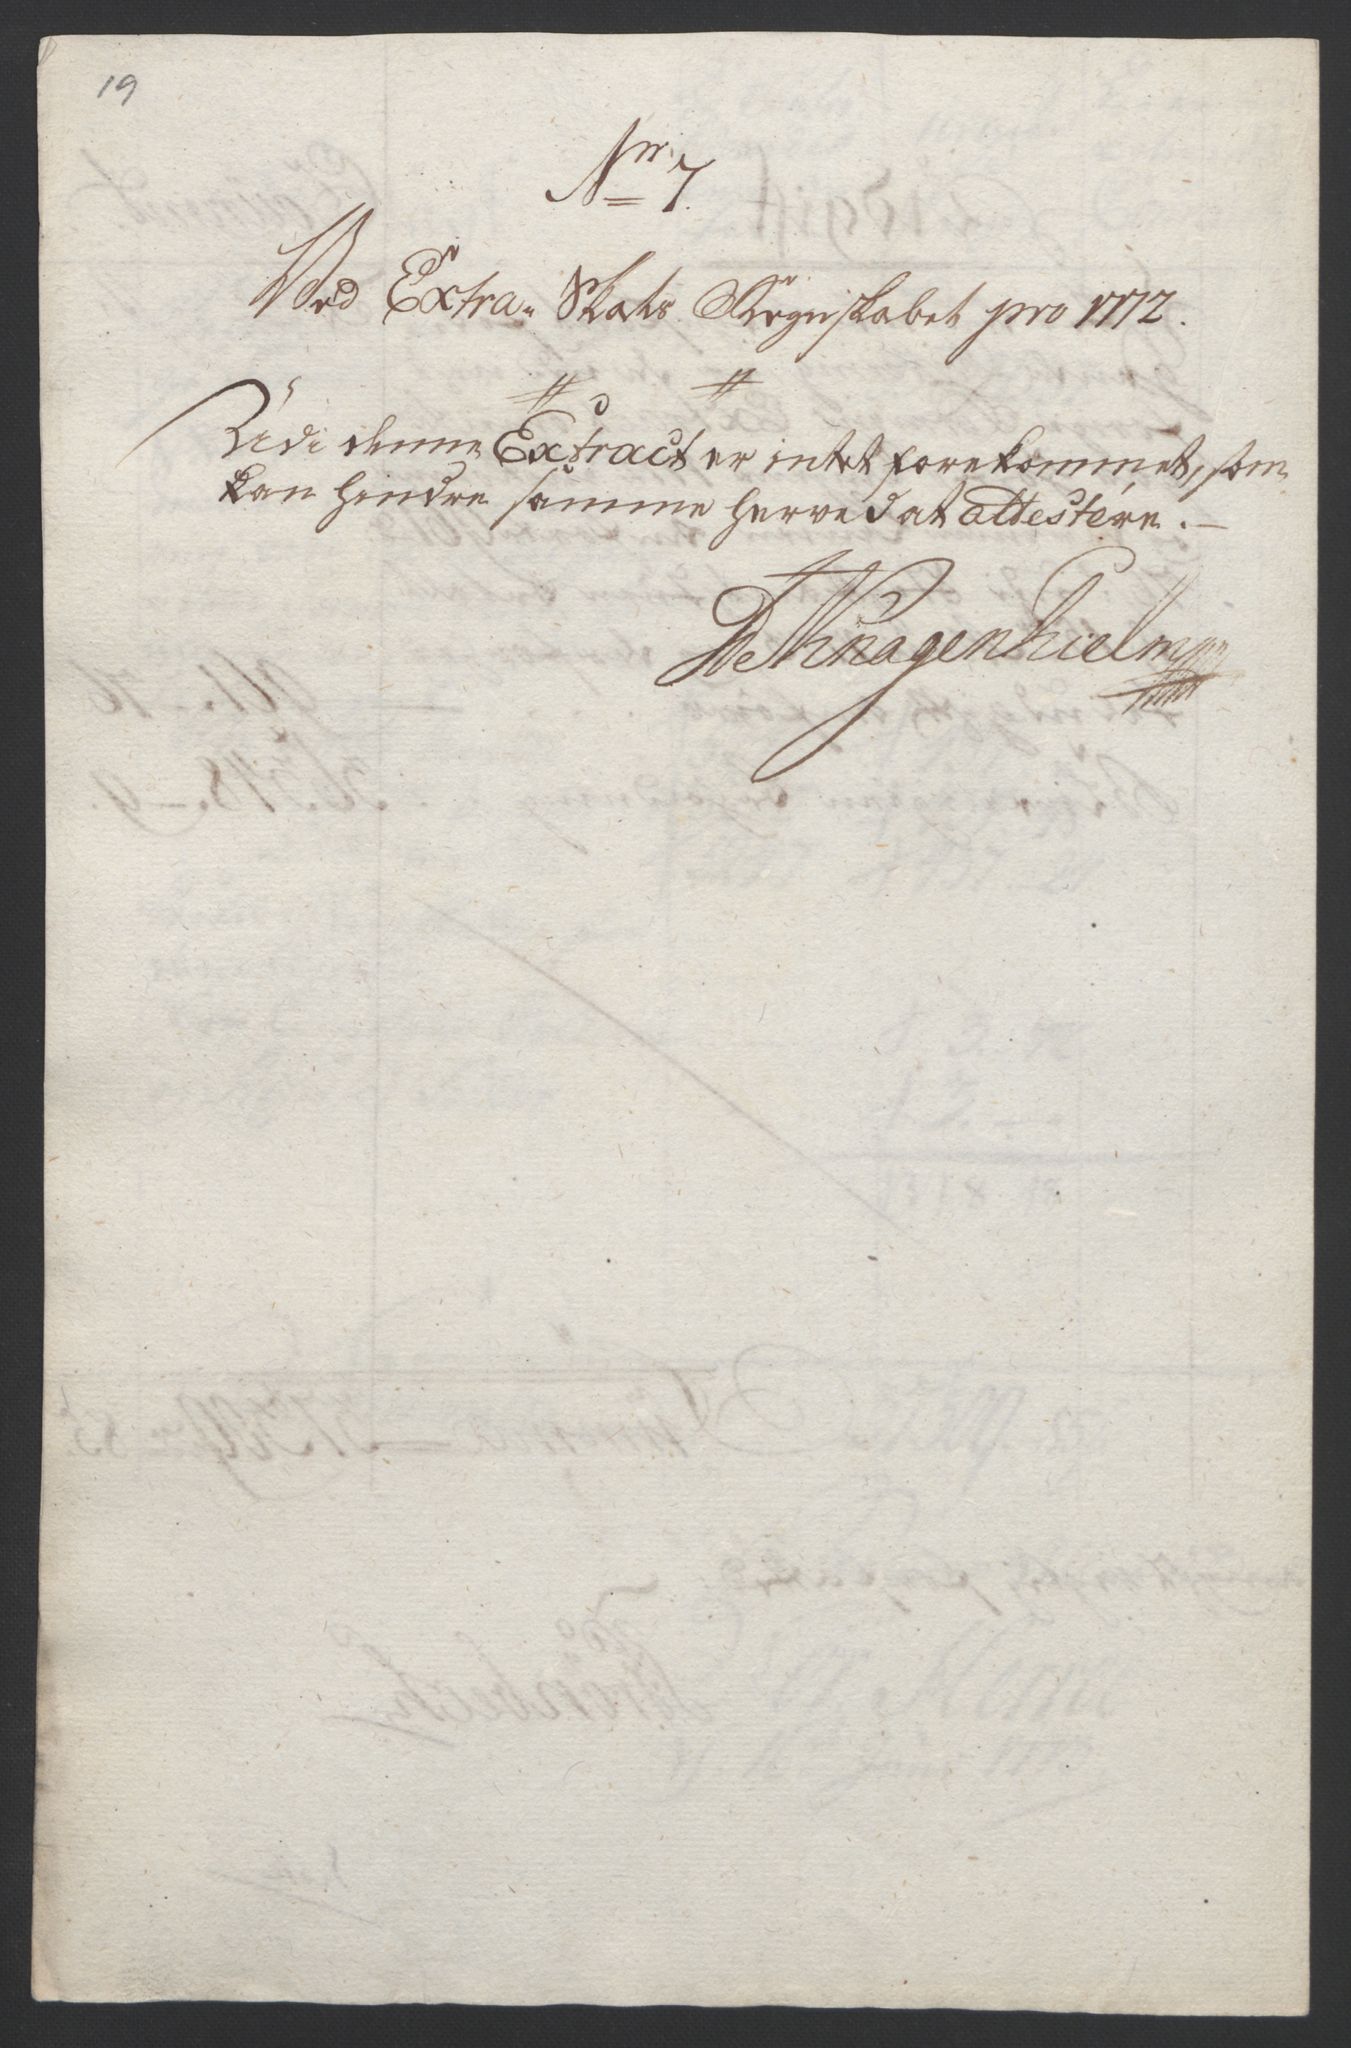 19
Nr 7.
Ved Extra- Skats Regnskabet pro 1772.
Udi denne Extract er intet forekommet, som
kan hindre samme herved at attestére. —
de Knagenhielm